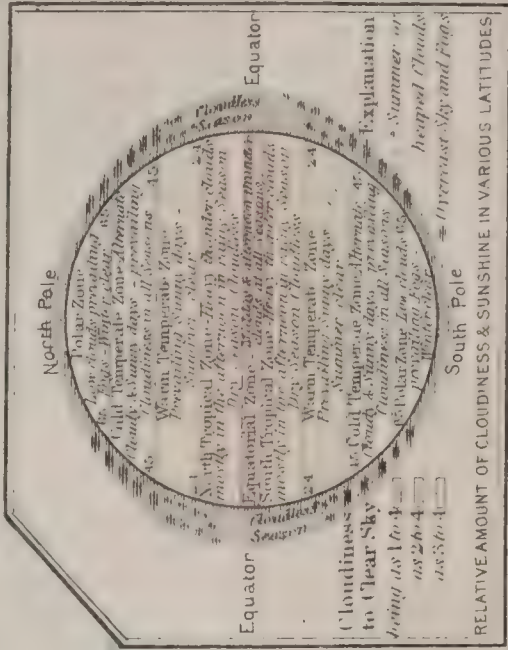 North Pole
Polar Zone
Low clouds prevailing
65 Fogs - Winter clear 65
Cold Temperate Zone Alternate
Cloudy & Sunny days - prevailing
45 Cloudiness in all Seasons 45
Warm Temperate Zone
Prevailing Sunny days -
Summer clear
North Tropical Zone - Heavy thunder clouds
mostly in the afternoon in rainy Season
Dry Season Cloudless
Equator
Equatorial Zone - Midday & afternoon thunder
clouds at all seasons
Equator
South Tropical Zone Heavy thunder clouds
mostly in the afternoon in rainy Season
Dry Season Cloudless
24 Warm Temperate Zone 24
Prevailing Sunny days
Summer clear
45 Cold Temperate Zone Alternate 45
Cloudy & Sunny days prevailing
Cloudiness in all Seasons
65 Polar Zone Low clouds 65
prevailing Fogs -
Winter clear
South Pole
Cloudless
Season
Cloudless
Season
Cloudiness
to Clear Sky
being as 1 to 4
as 2 to 4
as 3 to 4
Explanation
Summer or
heaped Clouds
Overcast Sky and Fogs
RELATIVE AMOUNT OF CLOUDINESS & SUNSHINE IN VARIOUS LATITUDES